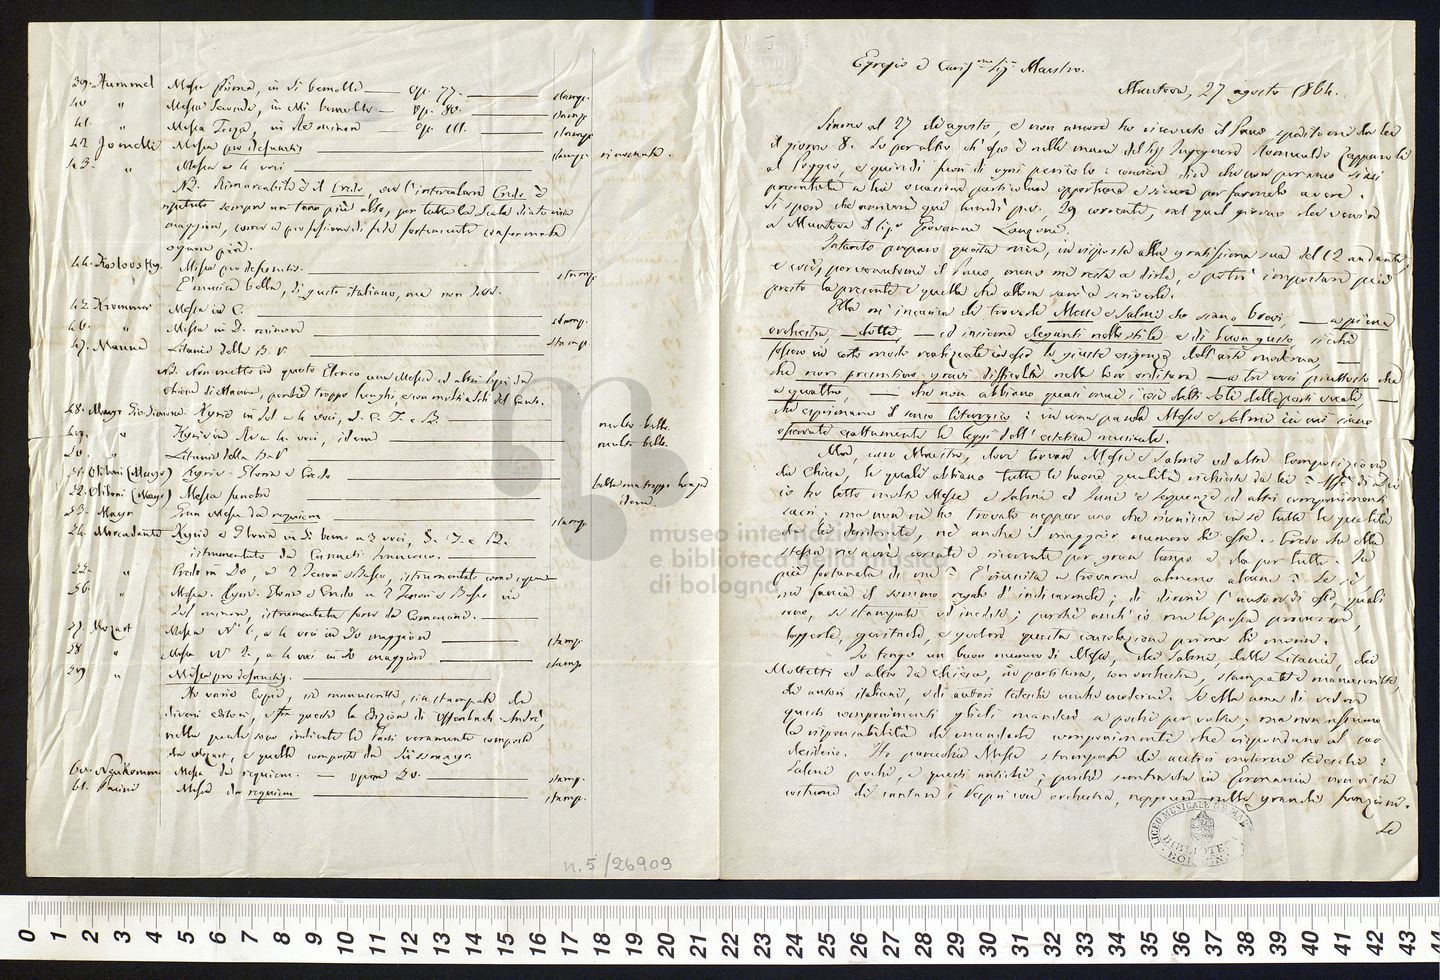 39. Hummel Messa prima, in Si bemolle — op. 77. — stamp.
40 " Messa Seconda, in Mi bemolle — op. 80. — stamp.
41. " Messa Terza, in Re minore — op. 111. — stamp.
42 Jomelli Messa pro defunctis — stamp. rinomata.
43. " Messa a 4 voci
NB. Rimarcabile è il Credo, ove l'intercalare Credo è
ripetuto sempre un tono più alto, per tutta la Scala diatonica
maggiore, come a professione di fede fortemente confermata
ognora più.
44. Kosloosky. Messa pro defunctis. — stamp.
È musica bella, di gusto italiano, ma non
45. Krommer Messa in C. — stamp.
46. " Messa in D. minore — stamp.
47. Litanie della B. V.
NB. Non metto in questo Elenco una Messa ed altri pezzi da
chiesa di perché troppo lunghi e con molti soli del Canto.
48. Mayr Gio. Simone. Kyrie in Sol a 4 voci, S. C. T. e B. — molto bello.
49. " Kyrie in La a 4 voci, idem — molto bello.
50. " Litanie della B. V.
51. (Mayr) Kyrie - Gloria e Credo — bella ma troppo lunga
52. (Mayr) Messa funebre — idem.
53. Mayr Gran Messa da requiem — stamp.
54. Mercadante Kyrie e Gloria in Si bemo a 3 voci, S. T. e B.
istrumentato da Comencini
55. " Credo in Do, a 2 Tenori e Basso, istrumentato come sopra
56. " Messa. Kyrie - Gloria e Credo a 2 Tenori e Basso in
Sol minore, istrumentata forse da Comencini.
57. Mozart Messa N. 1, a 4 voci in Do maggiore — stamp.
58 " Messa N. 2, a 4 voci in Do maggiore — stamp.
59 " Messa pro defunctis.
Ne vario copie, in manoscritto, in istampa da
diversi editori, e fra queste la Edizione di Offenbach - André,
nella quale sono indicate le Parti veramente composte
da Mozart, e quelle composte da Süssmayr.
60. Neukomm Messa da requiem. — opera 50. — stamp.
61. Pacini Messa da requiem — stamp.
n. 5/26909
Egregio e Sig. Maestro.
Mantova, 27 agosto 1864.
Siamo al 27 di agosto, e non ancora ho ricevuto il Pacco speditomi da lei
il giorno 8. So per altro ch'esso è nelle mani del Sig. Ingegnere Romualdo
al Poggio, e quindi fuori di ogni pericolo: conviene dire che non per anco siasi
presentata a lui occasione particolare opportuna e sicura per farmelo avere.
Si spera che avverrà qui lunedì p.v. 29 corrente, nel qual giorno deve venire
a Mantova il Sig. Giovanni
Intanto preparo questa mia, in risposta alla gratissima sua del 12 andante,
e così, pervenutomi il Pacco, meno mi resta a dirle, e potrò impostare più
presto la presente e quella che allora sarò a scriverle.
Ella mi incarica di trovarle Messe e Salmi che siano brevi, — a piena
orchestra, — dotte, — ed insieme eleganti nello stile e di buon gusto, sicché
fossero in certo modo realizzate in esse le giuste esigenze dell'arte moderna, —
che non presentino gravi difficoltà nella loro orditura — a tre voci piuttosto che
a quattro, — che non abbiano quasi mai i così detti Soli delle parti vocali, —
che esprimano il senso liturgico: in una parola Messe e Salmi in cui siano
osservate esattamente le leggi dell'estetica musicale.
Ma, caro Maestro, dove trovar Messe e Salmi ed altre Composizioni
da Chiesa, le quali abbiano tutte le buone qualità richieste da lei?
io ho letto molte Messe e Salmi ed Inni e sequenze ed altri componimenti
sacri: ma non ne ho trovato neppur uno che riunisca in sé tutte le qualità
da lei desiderate, né anche il maggior numero di esse. Credo che ella
stessa ne avrà cercate e ricercate per gran tempo e da per tutto. Fu
più fortunata di me? È riuscita a trovarne almeno alcune? Se sì,
mi faccia il sommo regalo d'indicarmele; di dirmi l'autore di esse, quali
sono, se stampate od inedite; perché anch'io me le possa procurare,
leggerle, gustarle, e godere questa consolazione prima di morire.
Io tengo un buon numero di Messe, dei Salmi, delle Litanie, dei
Mottetti ed altro da chiesa, in partitura, con orchestra, stampate e manoscritte,
di autori italiani, e di autori tedeschi anche moderni. Se ella ama di vedere
questi componimenti glieli manderò a pochi per volta: ma non assumo
la risponsabilità di mandarle componimenti che rispondano al suo
desiderio. Ho parecchie Messe stampate di autori moderni tedeschi:
Salmi pochi, e questi antichi; perché in Germania non vi è
costume di cantare i Vesperi con orchestra, neppure nelle grandi funzioni.
Le
LICEO MUSICALE G. B. MARTINI
BIBLIOTECA
BOLOGNA
museo internazionale
e biblioteca della musica
di bologna
0 1 2 3 4 5 6 7 8 9 10 11 12 13 14 15 16 17 18 19 20 21 22 23 24 25 26 27 28 29 30 31 32 33 34 35 36 37 38 39 40 41 42 43 44